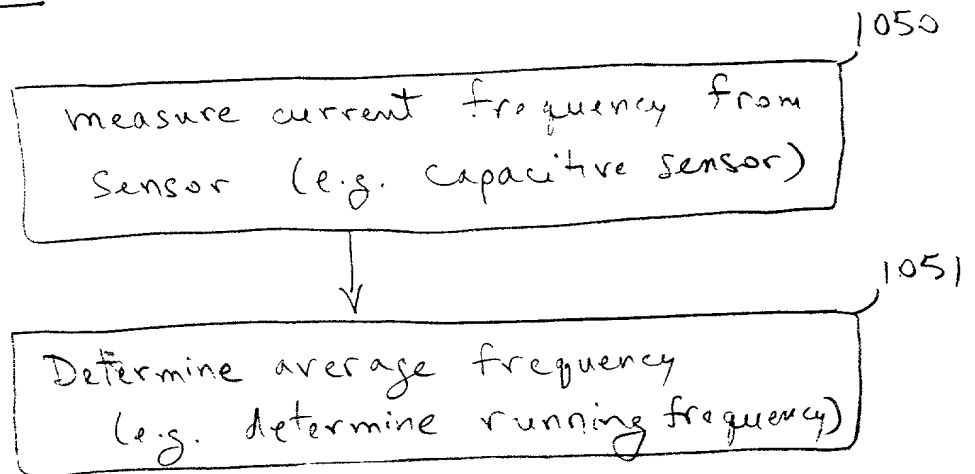 1050
measure current frequency from
sensor (e.g. capacitive sensor)
1051
Determine average frequency
(e.g. determine running frequency)